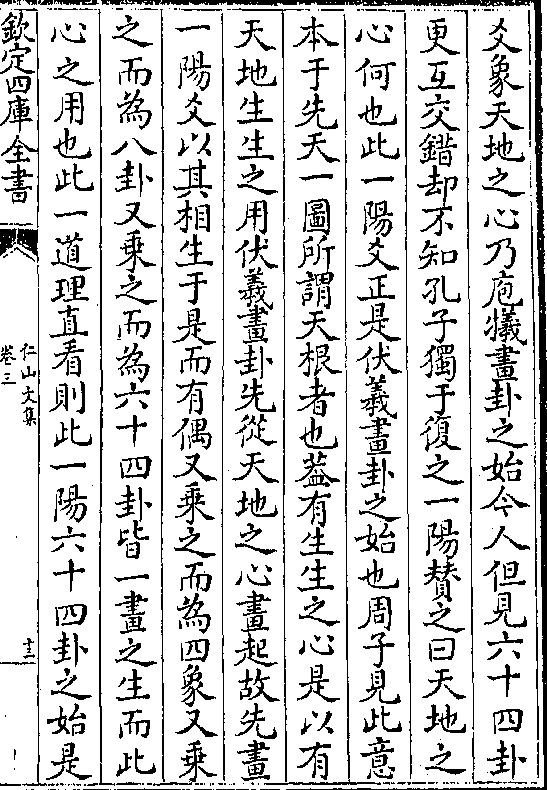 爻象天地之心乃庖犧畫卦之始今人但見六十四卦
更互交錯却不知孔子獨于復之一陽賛之曰天地之
心何也此一陽爻正是伏羲畫卦之始也周子見此意
本于先天一圖所謂天根者也葢有生生之心是以有
天地生生之用伏羲畫卦先從天地之心畫起故先畫
一陽爻以其相生于是而有偶又乗之而為四象又乗
之而為八卦又乗之而為六十四卦皆一畫之生而此
心之用也此一道理直看則此一陽六十四卦之始是
欽定四庫全書
仁山文集
卷三
十三